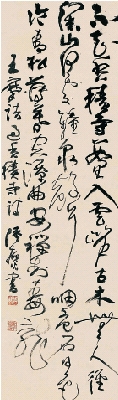 不知香積寺數里入雲峰古木無人徑
深山何處鐘泉聲咽危石日色
冷青松薄暮空潭曲安禪制毒龍
王摩詰過香積寺詩
書